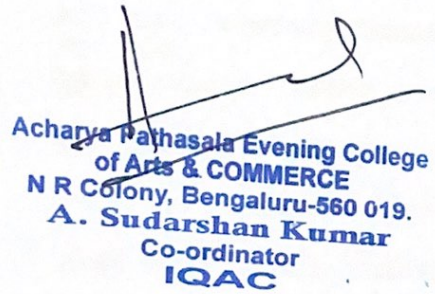 Acharya Pathasala Evening College
of Arts & COMMERCE
N R Colony, Bengaluru-560 019.
A. Sudarshan Kumar
Co-ordinator
IQAC